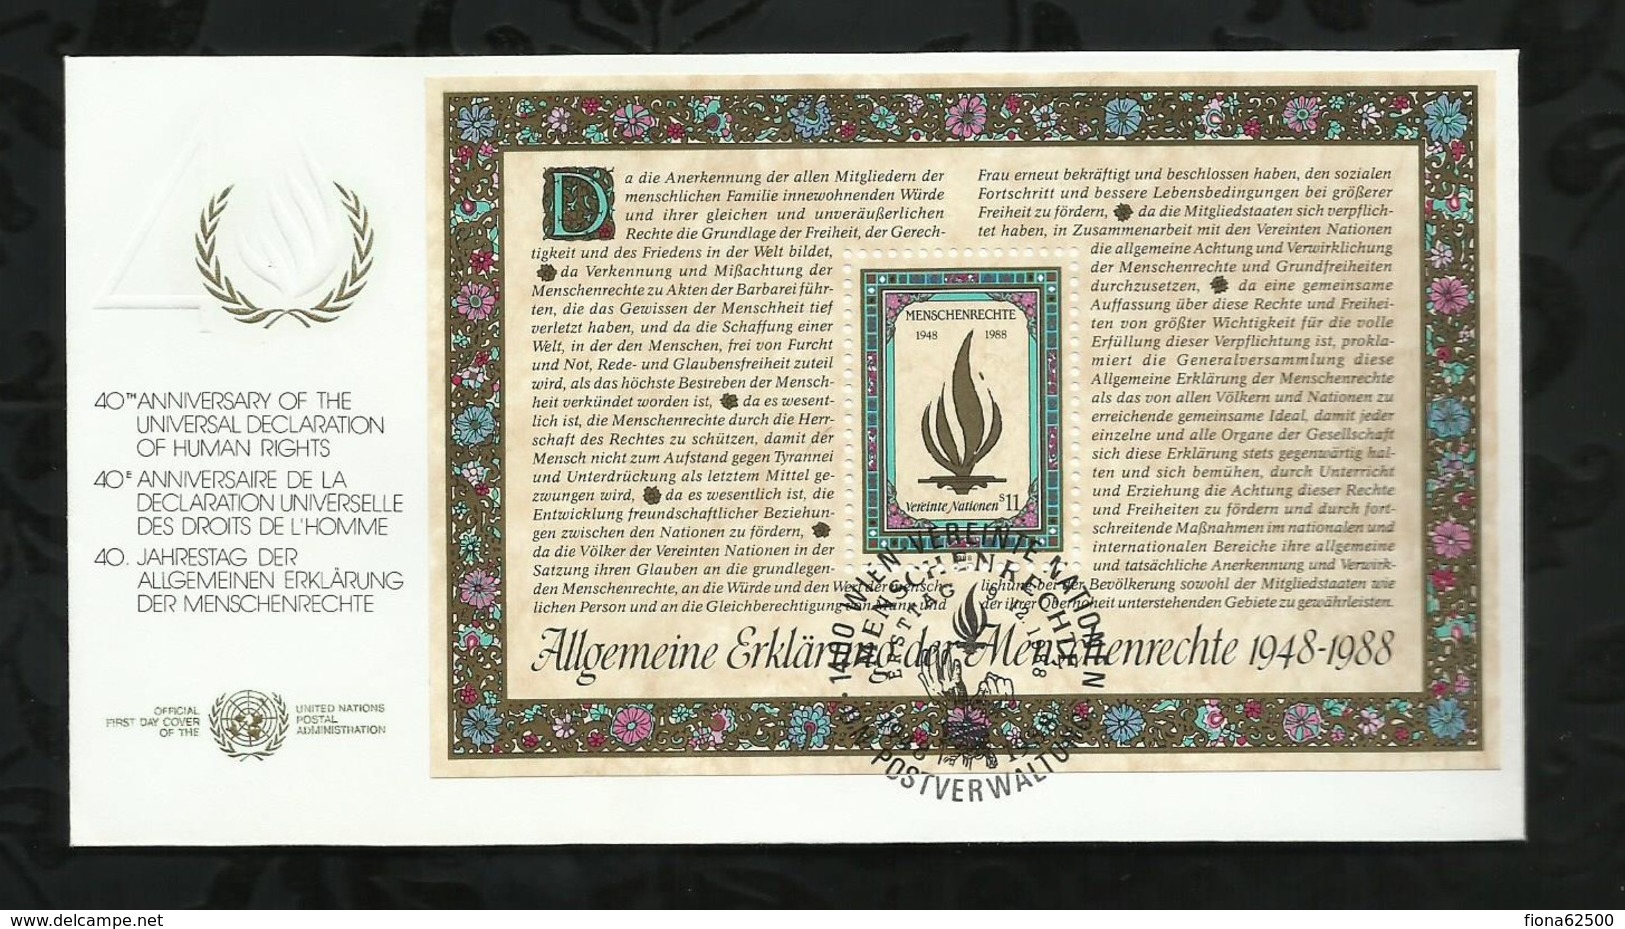 40TH ANNIVERSARY OF THE
UNIVERSAL DECLARATION
OF HUMAN RIGHTS
40E ANNIVERSAIRE DE LA
DECLARATION UNIVERSELLE
DES DROITS DE L'HOMME
40. JAHRESTAG DER
ALLGEMEINEN ERKLÄRUNG
DER MENSCHENRECHTE
OFFICIAL
FIRST DAY COVER
OF THE
UNITED NATIONS
POSTAL
ADMINISTRATION
Da die Anerkennung der allen Mitgliedern der
menschlichen Familie innewohnenden Würde
und ihrer gleichen und unveräußerlichen
Rechte die Grundlage der Freiheit, der Gerech-
tigkeit und des Friedens in der Welt bildet,
da Verkennung und Mißachtung der
Menschenrechte zu Akten der Barbarei führ-
ten, die das Gewissen der Menschheit tief
verletzt haben, und da die Schaffung einer
Welt, in der den Menschen, frei von Furcht
und Not, Rede- und Glaubensfreiheit zuteil
wird, als das höchste Bestreben der Mensch-
heit verkündet worden ist, da es wesent-
lich ist, die Menschenrechte durch die Herr-
schaft des Rechtes zu schützen, damit der
Mensch nicht zum Aufstand gegen Tyrannei
und Unterdrückung als letztem Mittel ge-
zwungen wird, da es wesentlich ist, die
Entwicklung freundschaftlicher Beziehun-
gen zwischen den Nationen zu fördern,
da die Völker der Vereinten Nationen in der
Satzung ihren Glauben an die grundlegen-
den Menschenrechte, an die Würde und den Wert der mensch-
lichen Person und an die Gleichberechtigung von Mann und
Frau erneut bekräftigt und beschlossen haben, den sozialen
Fortschritt und bessere Lebensbedingungen bei größerer
Freiheit zu fördern, da die Mitgliedstaaten sich verpflich-
tet haben, in Zusammenarbeit mit den Vereinten Nationen
die allgemeine Achtung und Verwirklichung
der Menschenrechte und Grundfreiheiten
durchzusetzen, da eine gemeinsame
Auffassung über diese Rechte und Freihei-
ten von größter Wichtigkeit für die volle
Erfüllung dieser Verpflichtung ist, prokla-
miert die Generalversammlung diese
Allgemeine Erklärung der Menschenrechte
als das von allen Völkern und Nationen zu
erreichende gemeinsame Ideal, damit jeder
einzelne und alle Organe der Gesellschaft
sich diese Erklärung stets gegenwärtig hal-
ten und sich bemühen, durch Unterricht
und Erziehung die Achtung dieser Rechte
und Freiheiten zu fördern und durch fort-
schreitende Maßnahmen im nationalen und
internationalen Bereiche ihre allgemeine
und tatsächliche Anerkennung und Verwirk-
lichung bei der Bevölkerung sowohl der Mitgliedstaaten wie
der ihrer Oberhoheit unterstehenden Gebiete zu gewährleisten.
MENSCHENRECHTE
1948 1988
Vereinte Nationen S11
1988
Allgemeine Erklärung der Menschenrechte 1948-1988
1400 WIEN - VEREINTE NATIONEN
MENSCHENRECHTE
ERSTTAG 9.12.1988
1948 1988
POSTVERWALTUNG
www.delcampe.net
fiona62500